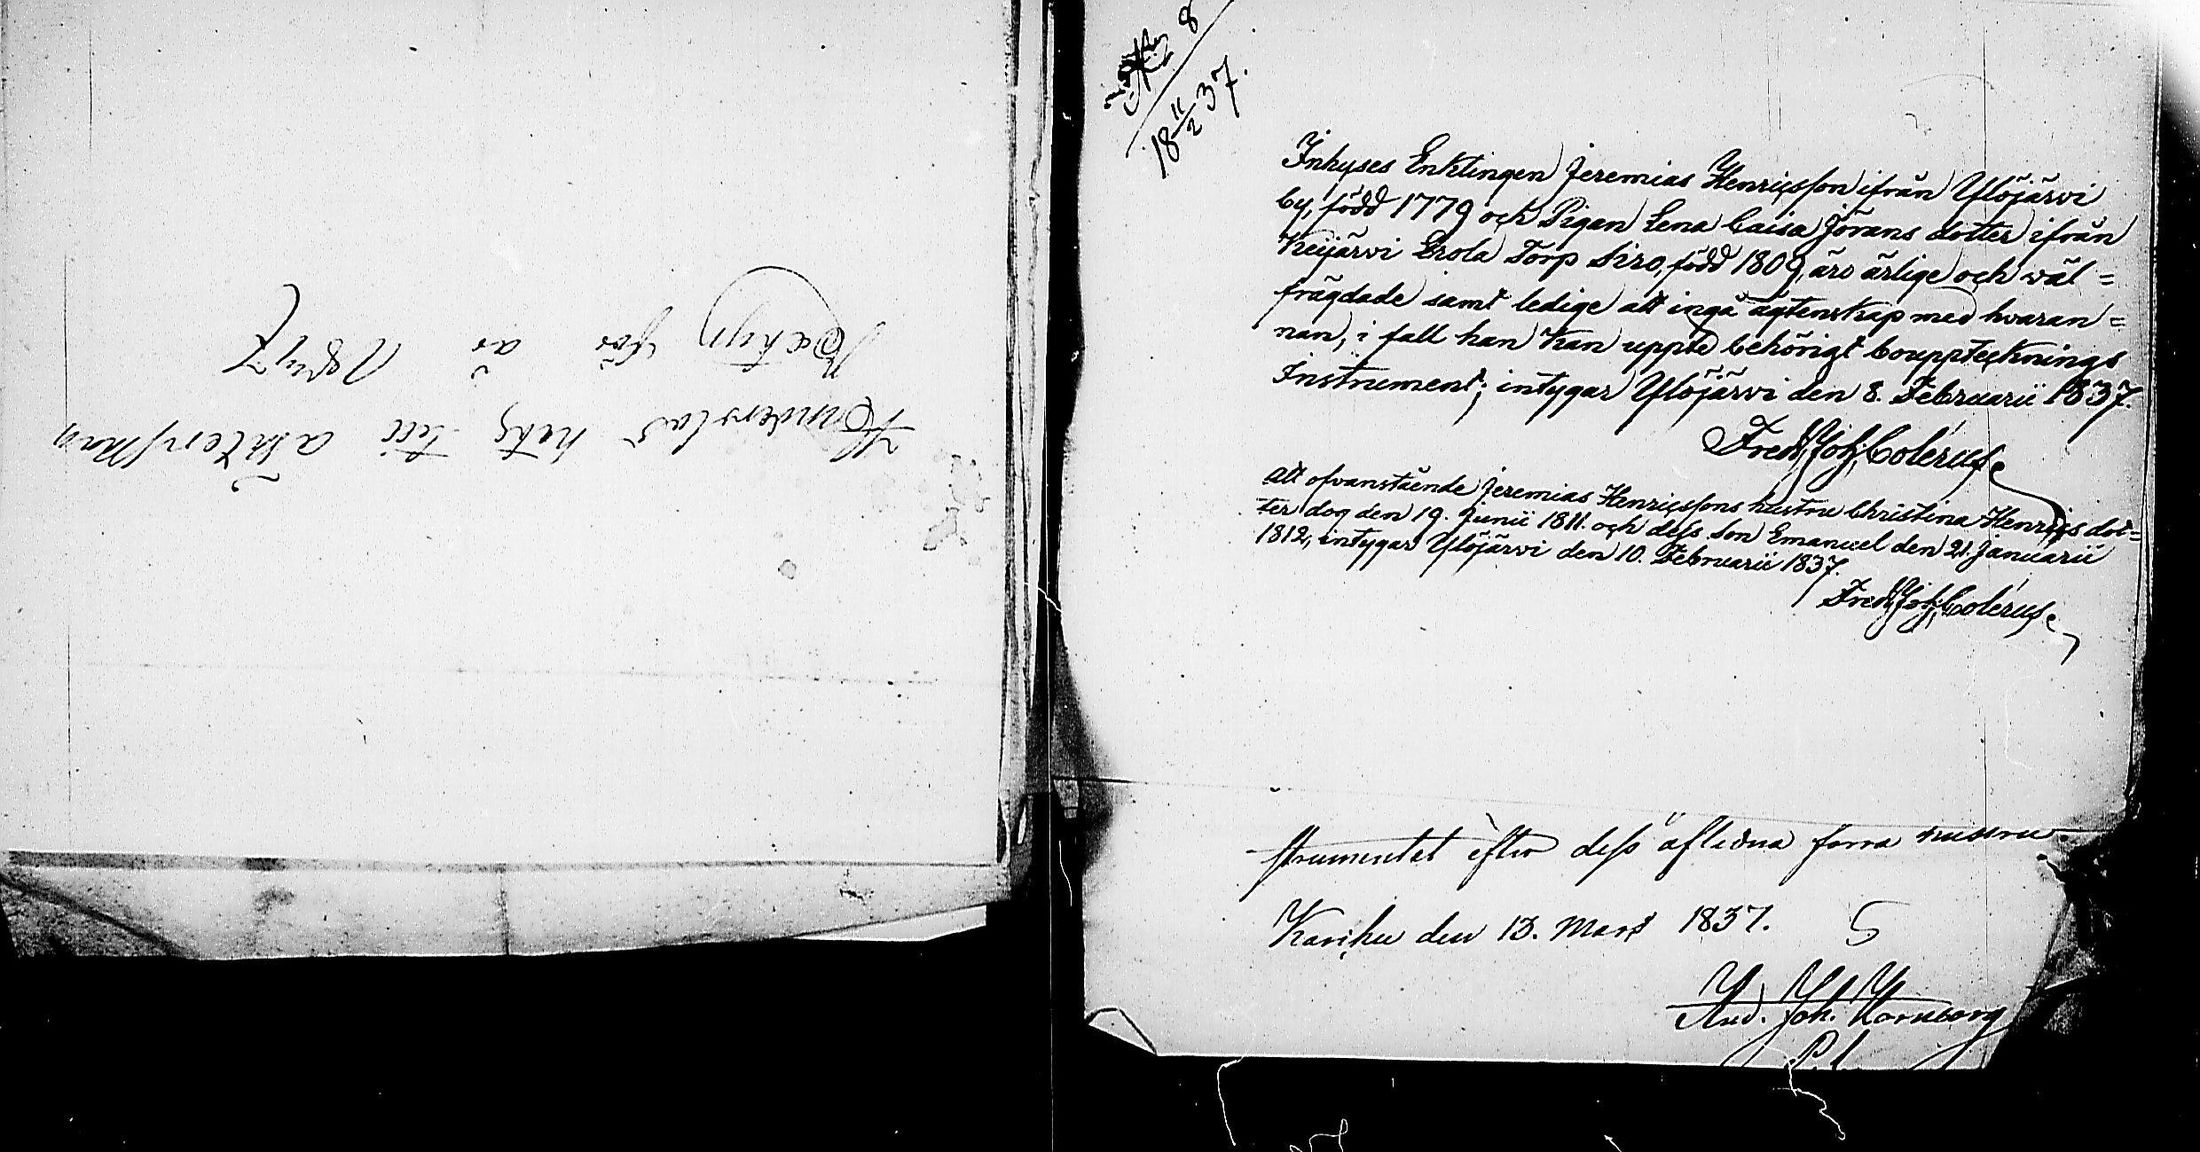 Hinderslös hets till äktenskap
för år 1837
8
18 11/2 37.
Inhyses Enklingen Jeremias Henricsson ifrån Ylöjärvi
by, född 1779 och Pigan Lena Caisa Jörans dotter ifrån
Keijärvi Erola Torp Siro, född 1809, äro ärlige och väl=
frägdade samt ledige att ingå ägtenskap med hvaran=
nan, i fall han kan uppte behörigt bouppteckning̅s
Instrument; intygar Ylöjärvi den 8. Februarii 1837.
Fred. Joh. Colérus.
Att ofvanstående Jeremias Henricssons hustru Christina Henrics dot=
ter dog den 19. Junii 1811. och dess son Emanuel den 21. Januarii
1812, intygar Ylöjärvi den 10. Februarii 1837.
Fred. Joh. Colérus.
strumentet efter dess aflidna förra hustru.
Karkku den 13. Mars 1837.
And. Joh. Hornborg